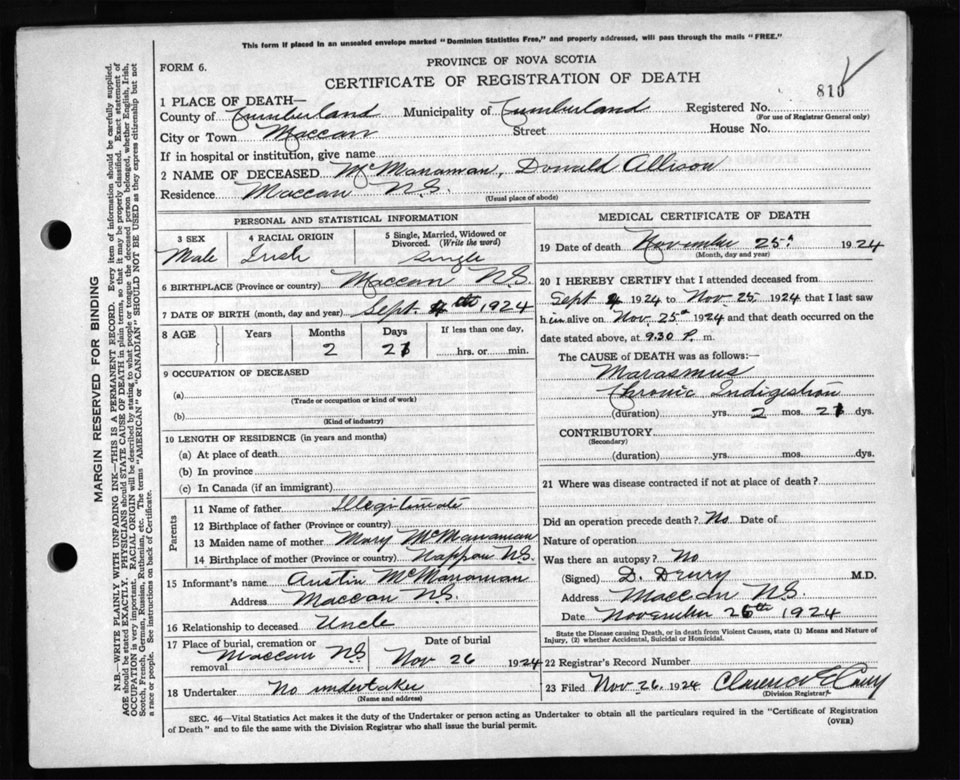 This form if placed in an unsealed envelope marked "Dominion Statistics Free," and properly addressed, will pass through the mails "FREE."
FORM 6.
PROVINCE OF NOVA SCOTIA
CERTIFICATE OF REGISTRATION OF DEATH
810
1 PLACE OF DEATH—
County of Cumberland Municipality of Cumberland Registered No.
(For use of Registrar General only)
City or Town Maccan Street House No.
If in hospital or institution, give name
2 NAME OF DECEASED McManaman, Donald Allison
Residence Maccan N.S.
(Usual place of abode)
PERSONAL AND STATISTICAL INFORMATION
3 SEX 4 RACIAL ORIGIN 5 Single, Married, Widowed or Divorced. (Write the word)
Male Irish Single
6 BIRTHPLACE (Province or country) Maccan N.S.
7 DATE OF BIRTH (month, day and year) Sept 4th 1924
8 AGE Years Months Days If less than one day,
2 21 hrs. or min.
9 OCCUPATION OF DECEASED
(a)
(Trade or occupation or kind of work)
(b)
(Kind of industry)
10 LENGTH OF RESIDENCE (in years and months)
(a) At place of death
(b) In province
(c) In Canada (if an immigrant)
Parents
11 Name of father Illegitimate
12 Birthplace of father (Province or country)
13 Maiden name of mother Mary McManaman
14 Birthplace of mother (Province or country) Nappan N.S.
15 Informant's name Austin McManaman
Address Maccan N.S.
16 Relationship to deceased Uncle
17 Place of burial, cremation or removal Maccan N.S.
Date of burial
Nov 26 1924
18 Undertaker No undertaker
(Name and address)
MEDICAL CERTIFICATE OF DEATH
19 Date of death November 25th 1924
(Month, day and year)
20 I HEREBY CERTIFY that I attended deceased from
Sept 4 1924 to Nov 25 1924 that I last saw
him alive on Nov 25th 1924 and that death occurred on
date stated above, at 9.30 P. m.
The CAUSE OF DEATH was as follows:—
Marasmus
Chronic Indigestion
(duration) yrs. 2 mos. 21 dys.
CONTRIBUTORY
(Secondary)
(duration) yrs. mos. dys.
21 Where was disease contracted if not at place of death?
Did an operation precede death? No Date of
Nature of operation
Was there an autopsy? No
(Signed) D. Drury M.D.
Address Maccan N.S.
Date November 26th 1924
State the Disease causing Death, or in death from Violent Causes, state (1) Means and Nature of
Injury, (2) whether Accidental, Suicidal or Homicidal.
22 Registrar's Record Number
23 Filed Nov. 26. 1924 Clarence E
(Division Registrar)
SEC. 46—Vital Statistics Act makes it the duty of the Undertaker or person acting as Undertaker to obtain all the particulars required in the "Certificate of Registration
of Death" and to file the same with the Division Registrar who shall issue the burial permit.
(OVER)
MARGIN RESERVED FOR BINDING
N.B.—WRITE PLAINLY WITH UNFADING INK—THIS IS A PERMANENT RECORD. Every item of information should be carefully supplied.
AGE should be stated EXACTLY. PHYSICIANS should STATE CAUSE OF DEATH in plain terms, so that it may be properly classified. Exact statement of
OCCUPATION is very important. RACIAL ORIGIN will be described by stating to what people or tongue the deceased person belonged, whether English, Irish,
Scotch, French, German, Russian, Ruthenian, etc. The terms "AMERICAN" or "CANADIAN" SHOULD NOT BE USED as they express citizenship but not
a race or people. See instructions on back of Certificate.